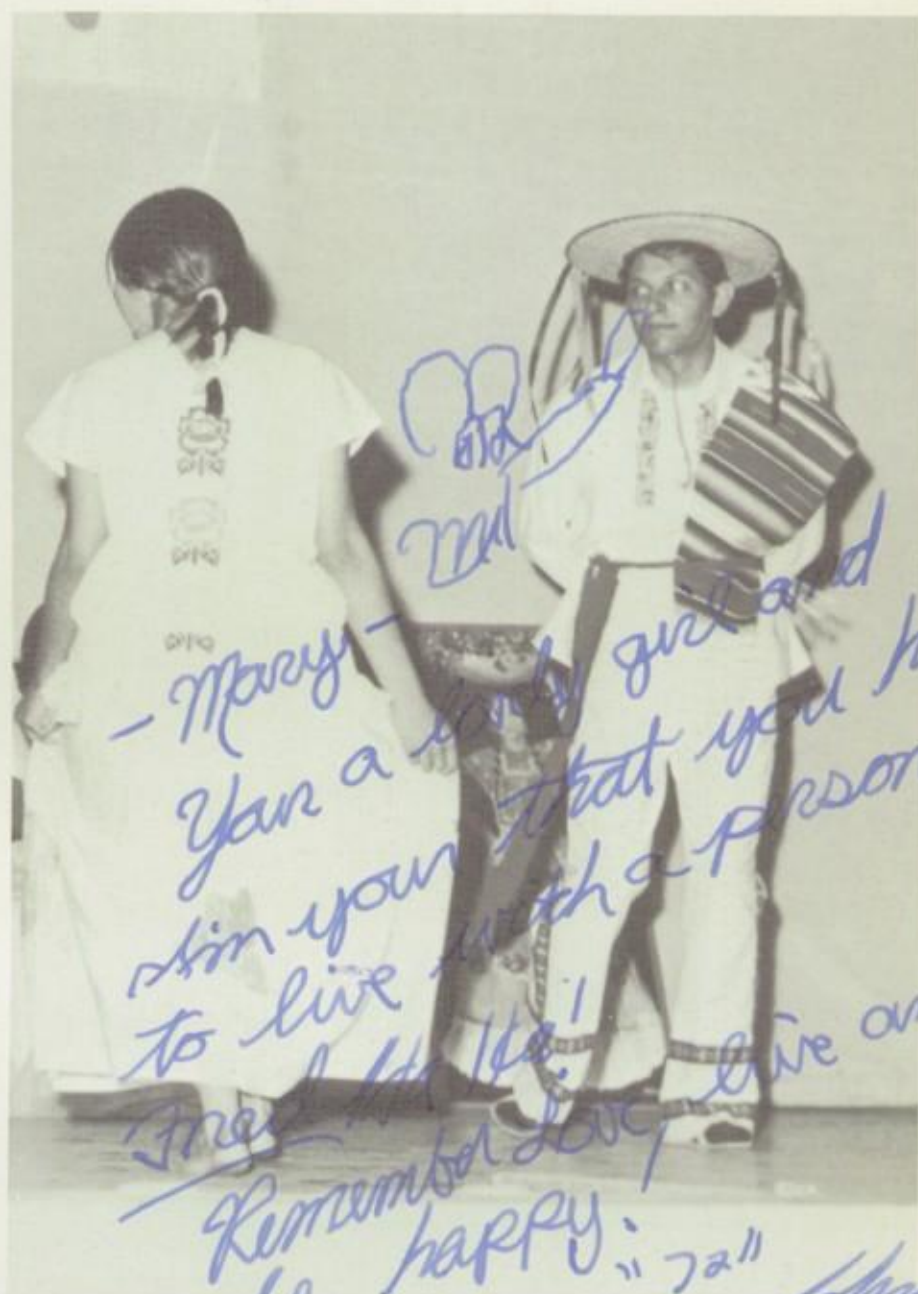 - Mary -
Your a lovely girl and
that you h
to live with a person
Fred Ha Ha!
Remember Love, live an
be happy!
"72"